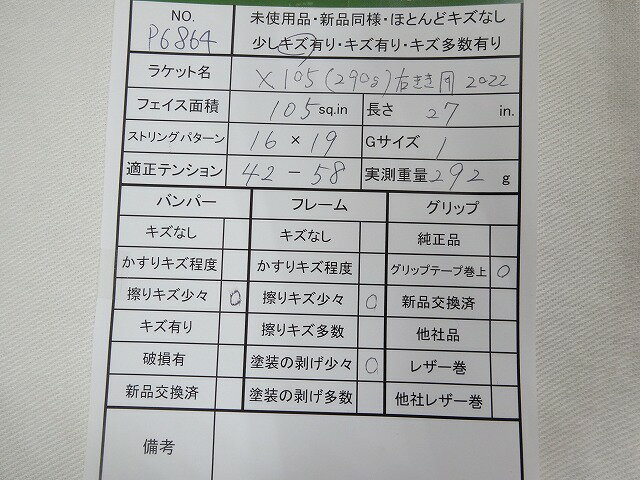 NO. 未使用品・新品同様・ほとんどキズなし
P6864 少しキズ有り・キズ有り・キズ多数有り
ラケット名 X105(290g)右きき用 2022
フェイス面積 105 sq.in 長さ 27 in.
ストリングパターン 16 × 19 Gサイズ 1
適正テンション 42 - 58 実測重量 292 g
バンパー フレーム グリップ
キズなし キズなし 純正品
かすりキズ程度 かすりキズ程度 グリップテープ巻上 ○
擦りキズ少々 ○ 擦りキズ少々 ○ 新品交換済
キズ有り 擦りキズ多数 他社品
破損有 塗装の剥げ少々 ○ レザー巻
新品交換済 塗装の剥げ多数 他社レザー巻
備考